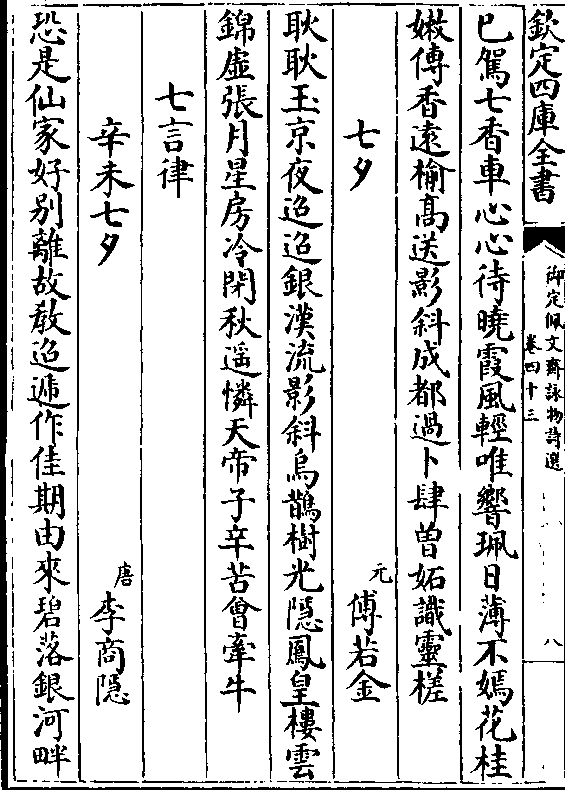 欽定四庫全書
御定佩文齋詠物詩選
卷四十三
八
已駕七香車心心待曉霞風輕唯響珮日薄不嫣花桂
嫩傳香遠榆高送影斜成都過卜肆曾妬識靈槎
七夕
元
傅若金
耿耿玉京夜迢迢銀漢流影斜烏鵲樹光隱鳳皇樓雲
錦虛張月星房冷閉秋遥憐天帝子辛苦會牽牛
七言律
辛未七夕
唐
李商隱
恐是仙家好别離故敎迢遞作佳期由來碧落銀河畔